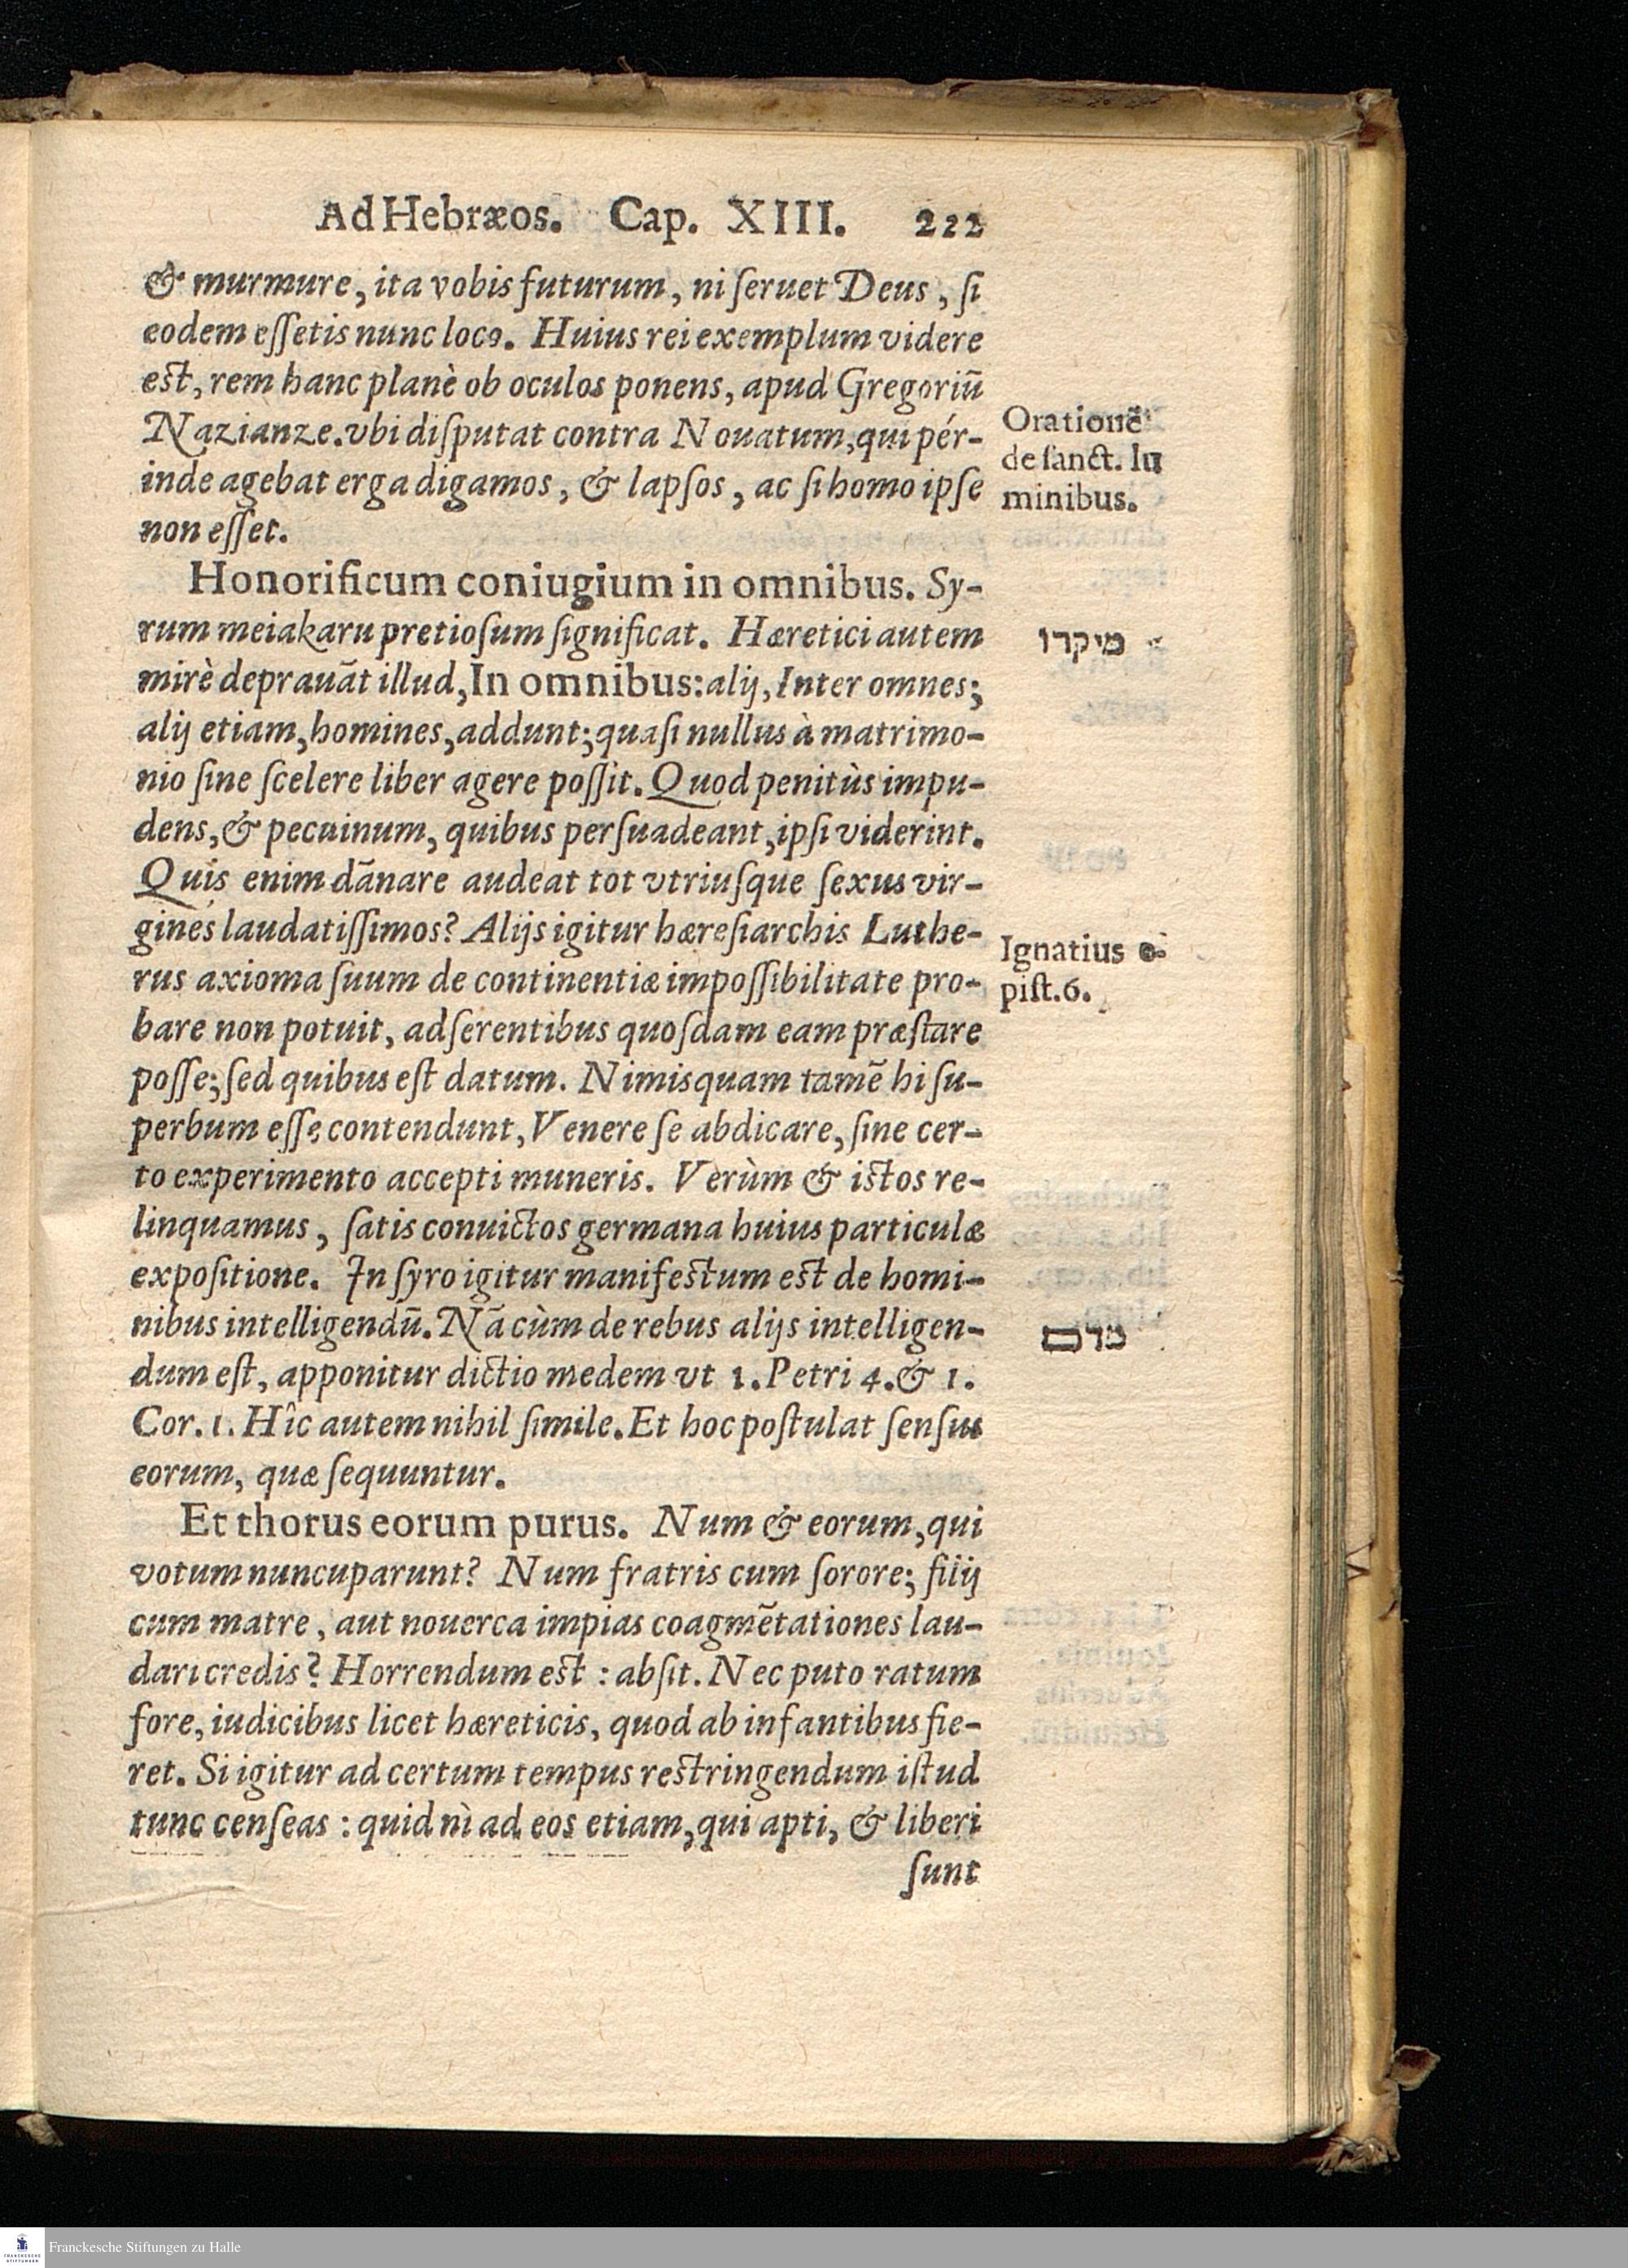 Ad Hebræos. Cap. XIII. 222
& murmure, ita vobis futurum, ni ſeruet Deus, ſi
eodem eſſetis nunc loco. Huius rei exemplum videre
est, rem hanc planè ob oculos ponens, apud Gregoriũ
Nazianze. vbi diſputat contra Nouatum, qui pér-
inde agebat erga digamos, & lapſos, ac ſi homo ipſe
non eſſet.
Orationẽ
de ſanct. lu
minibus.
Honorificum coniugium in omnibus. Sy-
rum meiakaru pretioſum ſignificat. Hæretici autem
מיקרו
mirè deprauãt illud, In omnibus: alij, Inter omnes;
alij etiam, homines, addunt; quaſi nullus à matrimo-
nio ſine ſcelere liber agere poſſit. Quod penitùs impu-
dens, & pecuinum, quibus perſuadeant, ipſi viderint.
Quis enim dãnare audeat tot vtriuſque ſexus vir-
gines laudatiſſimos? Alijs igitur hæreſiarchis Luthe-
rus axioma ſuum de continentiæ impoſſibilitate pro-
Ignatius e-
piſt. 6.
bare non potuit, adſerentibus quoſdam eam præſtare
poſſe; ſed quibus eſt datum. Nimisquam tamẽ hi ſu-
perbum eſſe contendunt, Venere ſe abdicare, ſine cer-
to experimento accepti muneris. Verùm & istos re-
linquamus, ſatis conuictos germana huius particulæ
expoſitione. In ſyro igitur manifestum est de homi-
nibus intelligendũ. Nã cùm de rebus alijs intelligen-
מדם
dum eſt, apponitur dictio medem vt 1. Petri 4. & 1.
Cor. 1. Hîc autem nihil ſimile. Et hoc poſtulat ſenſus
eorum, quæ ſequuntur.
Et thorus eorum purus. Num & eorum, qui
votum nuncuparunt? Num fratris cum ſorore; filij
cum matre, aut nouerca impias coagmẽtationes lau-
dari credis? Horrendum est: abſit. Nec puto ratum
fore, iudicibus licet hæreticis, quod ab infantibus fie-
ret. Si igitur ad certum tempus restringendum iſtud
tunc cenſeas: quid nì ad eos etiam, qui apti, & liberi
ſunt
FRANCKESCHE
STIFTUNGEN
Franckesche Stiftungen zu Halle